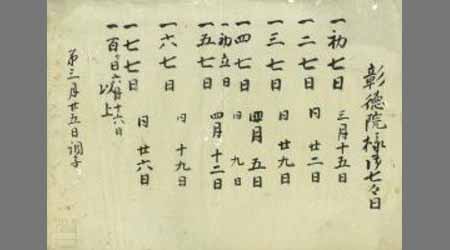 彰徳院様御七々日
一初七日 三月十五日
一二七日 同 廿二日
一三七日 同 廿九日
一四七日 四月 五日
一初立日 同 九日
一五七日 四月 十二日
一六七日 同 十九日
一七七日 同 廿六日
一百ヶ日 六月十六日
以上
三月廿五日調